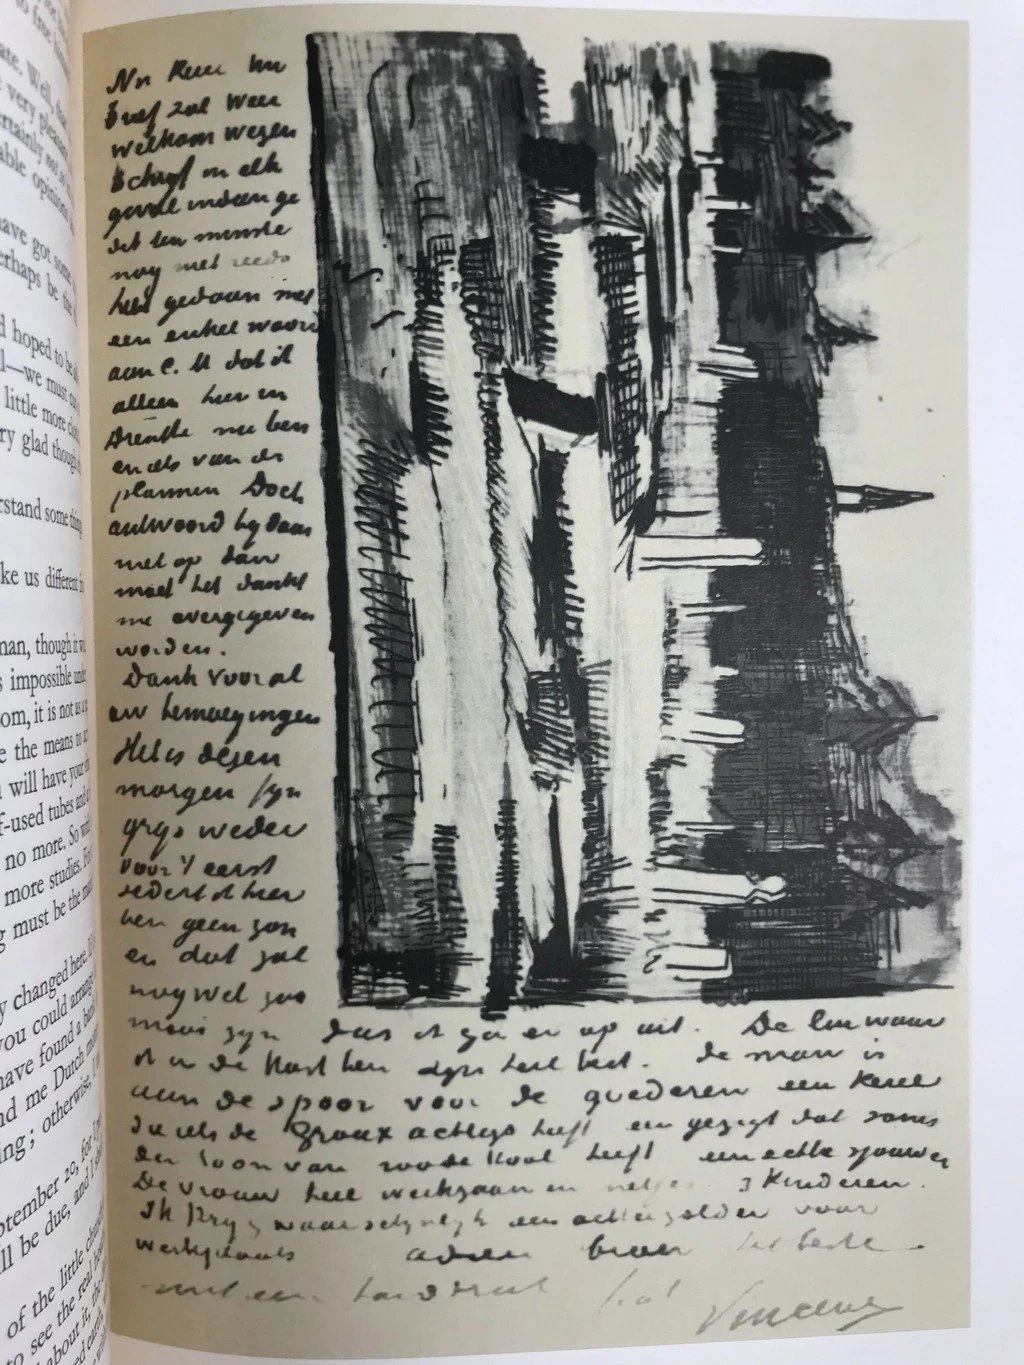 ate. Well,
very pleasan
certainly not
able opinion
have got some
perhaps be the
hoped to be
—we must
little more
ry glad though
rstand some thing
ke us different
man, though it w
s impossible unde
oom, it is not as
e the means to
will have your
f-used tubes and
no more. So
more studies. For
g must be the
y changed here.
you could arrange
have found a
nd me Dutch
ing; otherwise,
ptember 20, for
ll be due, and I
of the little
to see the real
about it, the
Nu kerel uw
brief zal weer
welkom wezen
schrijf in elk
geval indien ge
dit ten minste
nog niet reeds
hebt gedaan met
een enkel woord
aan C. M dat ik
alleen hier in
Drenthe nu ben
en iets van de
plannen Doch
antwoord hij daar
niet op dan
moet het
me overgegeven
worden.
Dank voor al
uw bemoeijingen
Het is dezen
morgen fijn
grijs weder
voor 't eerst
sedert ik hier
ben geen zon
en dat zal
nog wel zoo
mooi zijn dus ik ga er op uit. De lui waar
ik in de kost ben zijn heel best. de man is
aan de spoor voor de goederen een kerel
die iets de Groux achtigs heeft een gezigt dat soms
den toon van roode kool heeft een echte sjouwer
De vrouw heel werkzaam en netjes 3 kinderen.
Ik krijg waarschijnlijk een achterzolder voor
werkplaats adieu broer het beste
met een handdruk
Vincent